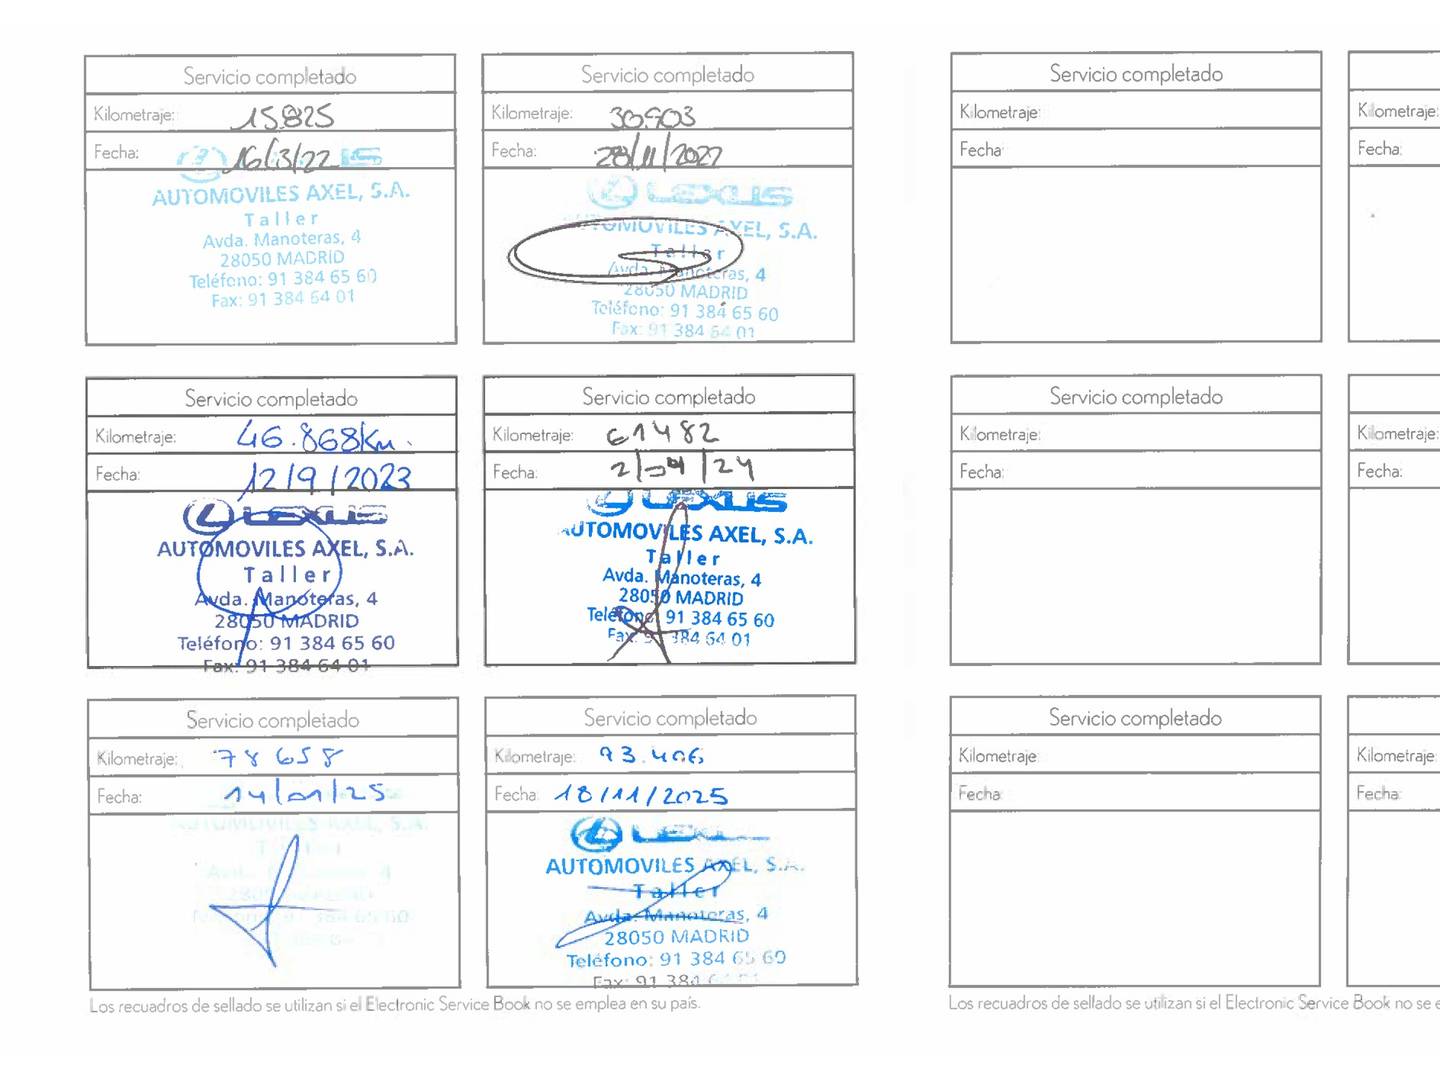 Servicio completado
Kilometraje: 15.825
Fecha: 16/3/22
AUTOMOVILES AXEL, S.A.
Taller
Avda. Manoteras, 4
28050 MADRID
Teléfono: 91 384 65 60
Fax: 91 384 64 01
Servicio completado
Kilometraje: 30.903
Fecha: 28/11/2022
LEXUS
AUTOMOVILES AXEL, S.A.
Taller
Avda. Manoteras, 4
28050 MADRID
Teléfono: 91 384 65 60
Fax: 91 384 64 01
Servicio completado
Kilometraje:
Fecha:
Kilometraje:
Fecha:
Servicio completado
Kilometraje: 46.868Km.
Fecha: 12/9/2023
LEXUS
AUTOMOVILES AXEL, S.A.
Taller
Avda. Manoteras, 4
28050 MADRID
Teléfono: 91 384 65 60
Fax: 91 384 64 01
Servicio completado
Kilometraje: 61482
Fecha: 2/04/24
LEXUS
AUTOMOVILES AXEL, S.A.
Taller
Avda. Manoteras, 4
28050 MADRID
Teléfono: 91 384 65 60
Fax: 91 384 64 01
Servicio completado
Kilometraje:
Fecha:
Kilometraje:
Fecha:
Servicio completado
Kilometraje: 78658
Fecha: 14/01/25
AUTOMOVILES AXEL, S.A.
Servicio completado
Kilometraje: 93.406
Fecha: 18/11/2025
LEXUS
AUTOMOVILES AXEL, S.A.
Taller
Avda. Manoteras, 4
28050 MADRID
Teléfono: 91 384 65 60
Fax: 91 384
Servicio completado
Kilometraje:
Fecha:
Kilometraje:
Fecha:
Los recuadros de sellado se utilizan si el Electronic Service Book no se emplea en su país.
Los recuadros de sellado se utilizan si el Electronic Service Book no se e